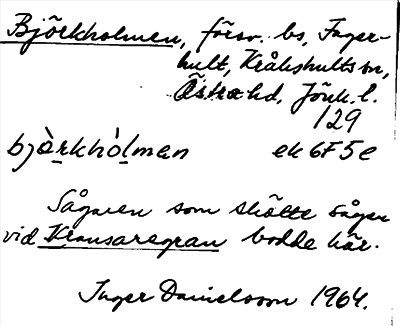 Björkholmen, försv. bs, Fager-
hult, Kråkshults sn,
Östra hd, Jönk. l.
129
bjò̱rkhòḻman ek 6F5e
Sågaren som skötte sågen
vid Kransaregran bodde här.
Inger Danielsson 1964.